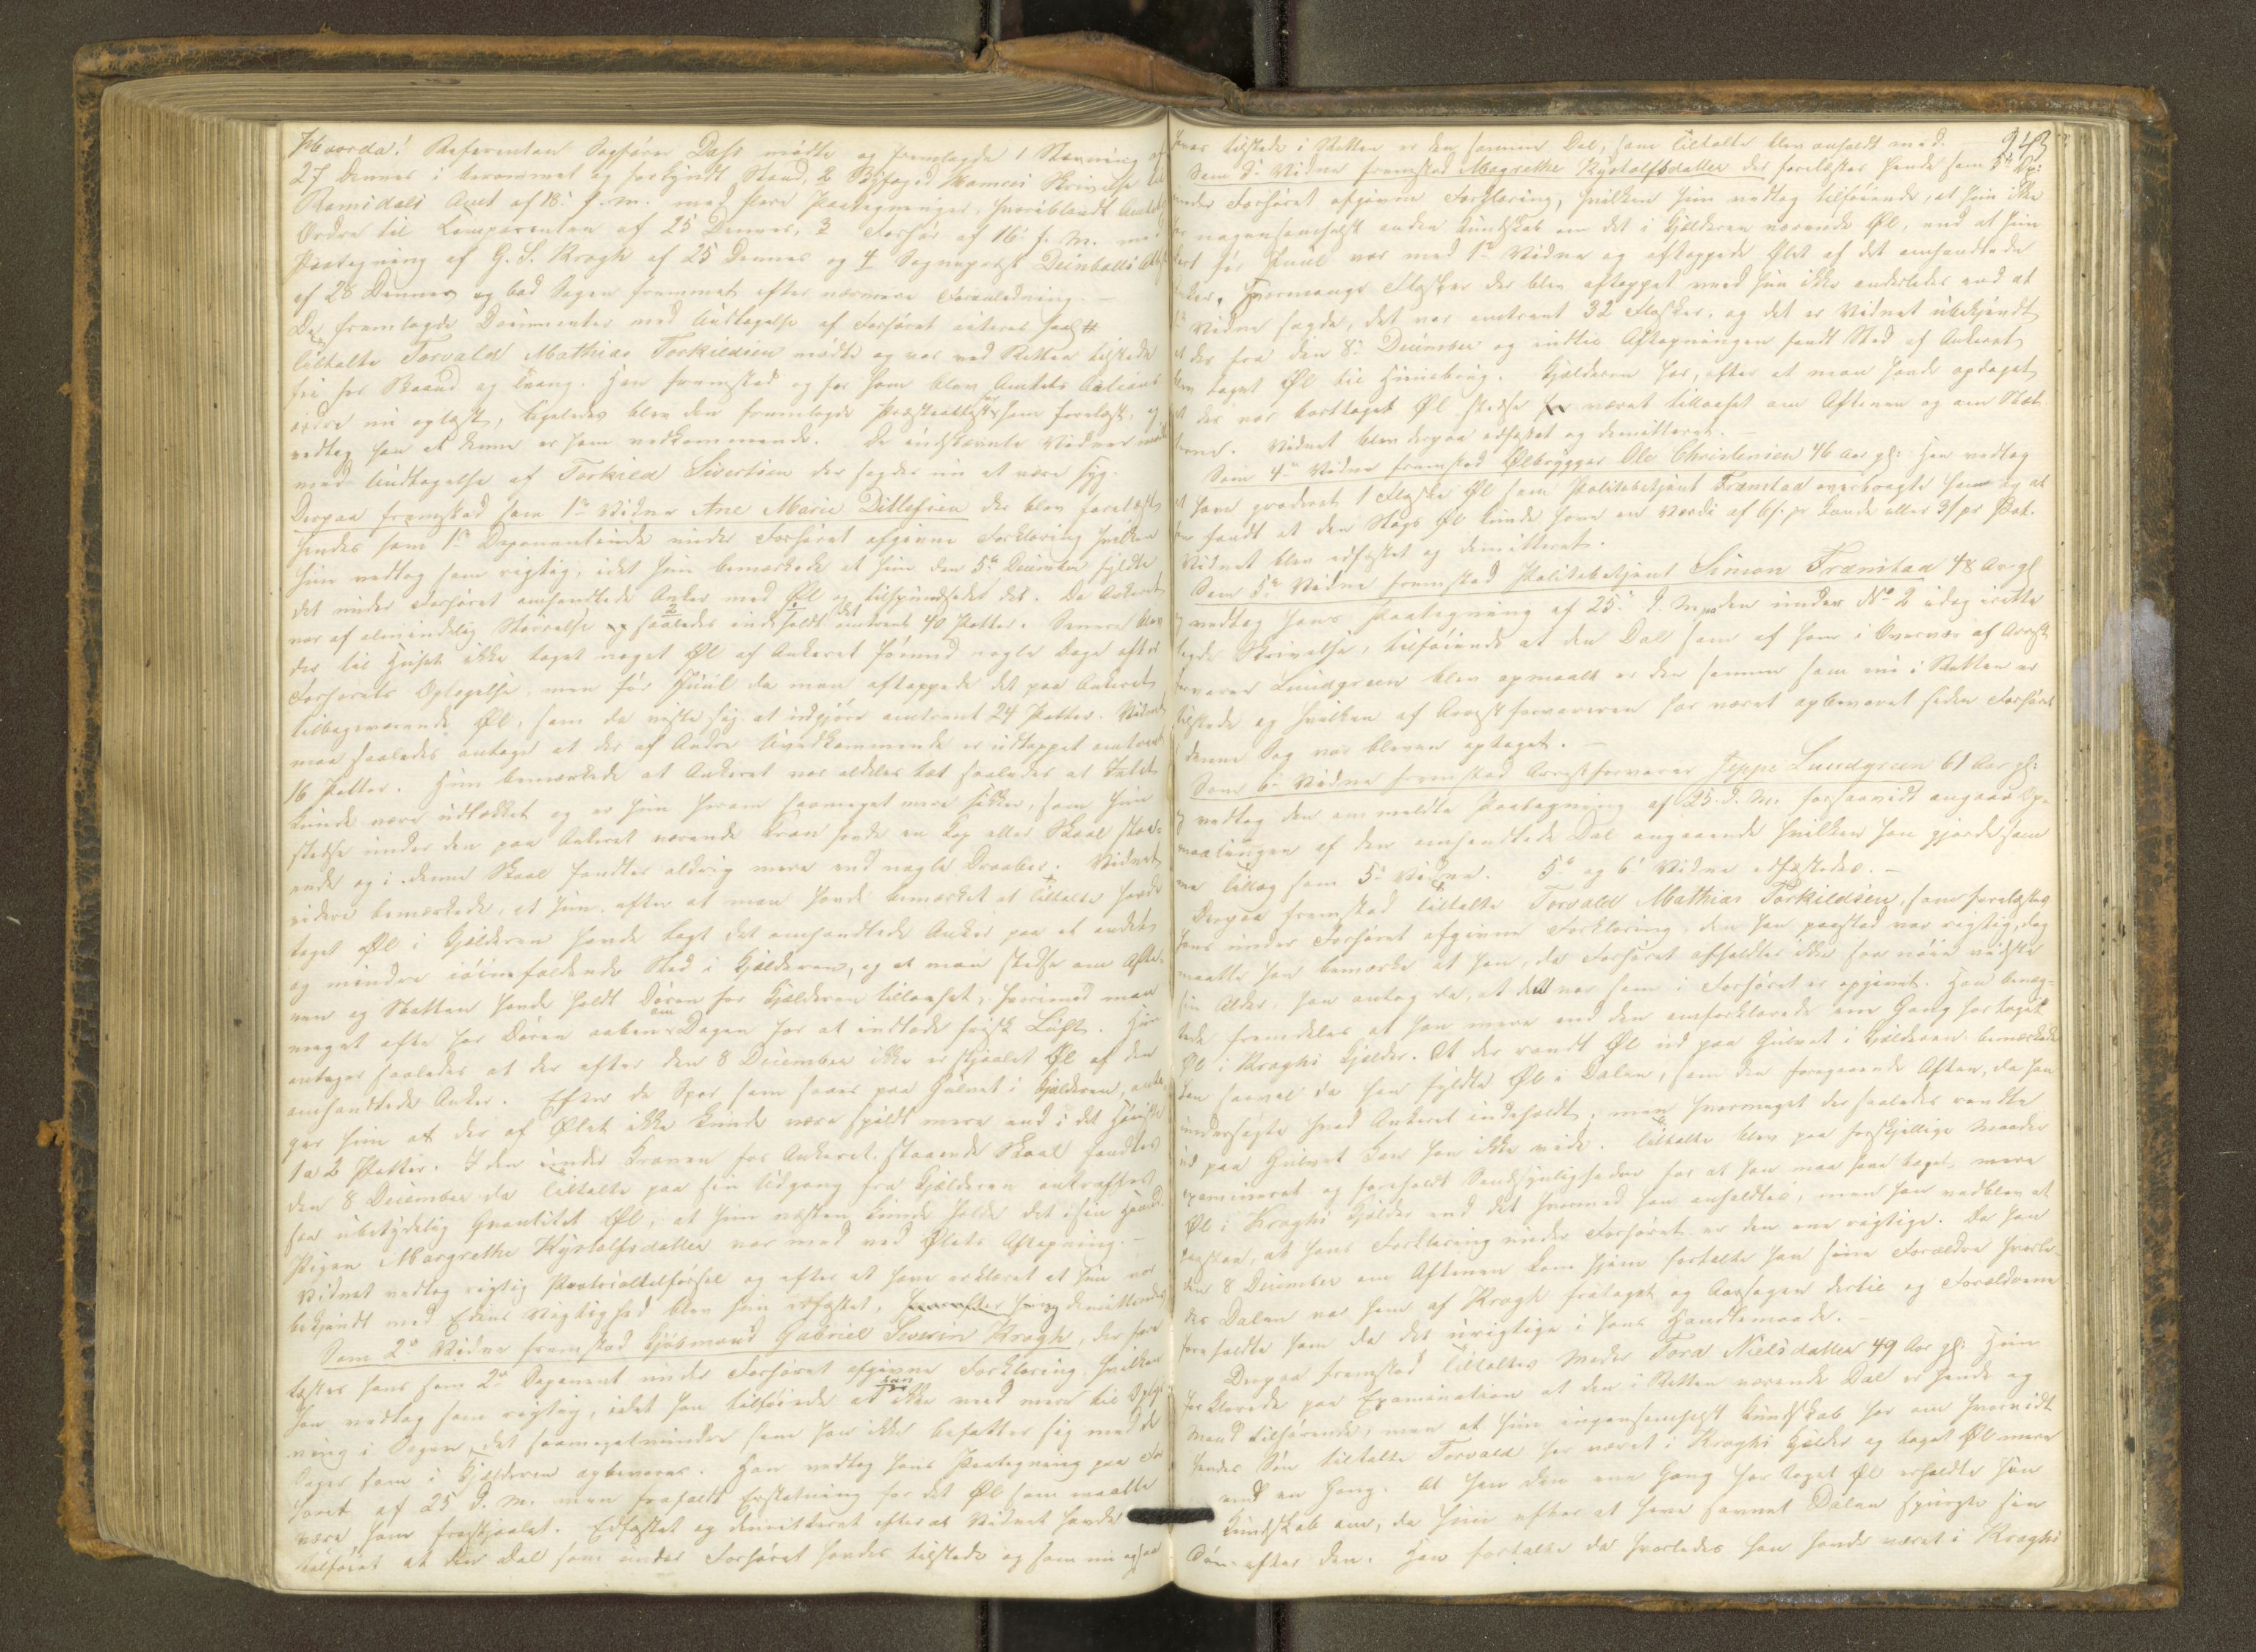 Hvorda! Referenten Sagfører Dahl mødte og fremlagde 1 Stævning af
27 Dennes i berammet og forkyndt Stand, 2 Byfoged Skrivelse til
Romsdals Amt af 18. f. m. med flere Paategninger, hvoriblandt Amtets
Ordre til Comparenten af 25 Dennes, 3 Forhør af 16. f. M. med
Paategning af G. S. Krogh af 25 Dennes og 4 Sogneprest Deinbolls Attest
af 28 Dennes og bad Sagen fremmet efter nærmere Foranledning. —
De fremlagde Documenter med Undtagelse af Forhøret
Tiltalte Torvald Mathias Torkildsen mødte og var ved Retten tilstede
fri for Baand og Tvang. Han fremstod og for ham blev Amtets Actions
ordre nu oplæst, ligeledes blev den fremlagde Præsteattest ham forelæst, og
vedtog han at denne er ham vedkommende. De indstævnte Vidner mødte
med Undtagelse af Torkild Sivertsen der sagdes nu at være syg.
Derpaa fremstod som 1te Vidne Ane Marie Ditlefsen der blev forelæst
hendes som 1te Deponentinde under Forhøret afgivne Forklaring hvilken
hun vedtog som rigtig, idet hun bemærkede at hun den 5te December fyldte
det under Forhøret omhandlede Anker med Øl og tilspundsede det. Da Ankeret
var af almindelig Størrelse og saaledes indeholdt det omtrent 40 Potter. Senere blev
der til Huset ikke taget noget Øl af Ankeret førend nogle Dage efter
Forhørets Optagelse, men før Juul da man aftappede det paa Ankeret
tilbageværende Øl, som da viste sig at udgjøre omtrent 24 Potter. Vidnet
maa saaledes antage at der af Andre Uvedkommende er udtappet omtrent
16 Potter. Hun bemærkede at Ankeret var aldeles tæt saaledes at Intet
kunde være udlækket og er hun herom saameget mere sikker, som hun
stedse under den paa Ankeret værende Kran havde en Kop eller Skaal staa-
ende og i denne Skaal fandtes aldrig mere end nogle Draaber. Vidnet
videre bemærkede, at hun, efter at man havde bemærket at Tiltalte havde
taget Øl i Kjælderen havde lagt det omhandlede Anker paa et andet
og mindre iøinefaldende Sted i Kjælderen, og at man stedse om Afte-
nen og Natten havde holdt Døren for Kjælderen tillaaset, hvorimod man
meget ofte har Døren aaben om Dagen for at indlade frisk Luft. Hun
antager saaledes at der efter den 8 December ikke er stjaalet Øl af den
omhandlede Anker. Efter de Spor som saaes paa Gulvet i Kjælderen, anta-
ger hun at der af Ølet ikke kunde være spildt mere end i det Høieste
1 a 2 Potter. I den under Kranen for Ankeret staaende Skaal fandtes
den 8 December da Tiltalte paa sin Udgang fra Kjælderen antraffes
saa ubetydelig Qvantitet Øl, at hun næsten kunde holde det i sin Haand.
Pigen Margrethe Kystolfsdatter var med ved Ølets Aftapning. —
Vidnet vedtog rigtig Protocoltilførsel og efter at have erklæret at hun var
bekjendt med Edens Vigtighed blev hun edfæstet, demitteredes
Som 2de Vidne fremstod Kjøbmand Gabriel Severin Krogh, der fore
læstes hans som 2de Deponent under Forhøret afgivne Forklaring hvilken
han vedtog som rigtig, idet han tilføiede at han ikke veed mere til Oplys
ning i Sagen, det saamegetmindre som han ikke befatter sig med de
Sager som i Kjælderen opbevares. Han vedtog hans Paategning paa For
høret af 25 d. M. men frafaldt Erstatning for det Øl som maatte
være ham frastjaalet. Edfæstet og demitteret efterat Vidnet havde
tilføiet at den Dal som under Forhøret havdes tilstede og som nu ogsaa
943
haves tilstede i Retten er den samme Dal, som Tiltalte blev anholdt med.
Som 3die Vidne fremstod Magrethe Kystolfsdatter der forelæstes hendes som 3die Dp:
under Forhøret afgivne Forklaring, hvilken hun vedtog tilføiende, at hun ikke
har nogensomhelst anden Kundskab om det i Kjælderen værende Øl, end at hun
kort før Juul var med 1te Vidne og aftappede Ølet af det omhandlede
Anker. Hvormange Flasker der blev aftappet veed hun ikke anderledes end at
1te Vidne sagde, det var omtrent 32 Flasker, og det er Vidnet ubekjendt
at der fra den 8de December og indtil Aftapningen fandt Sted af Ankeret
blev taget Øl til Huusbrug. Kjælderen har, efter at man havde opdaget
at der var borttaget Øl stedse været tillaaset om Aftenen og om Nat
terne. Vidnet blev derpaa edfæstet og demitteret. —
Som 4de Vidne fremstod Ølbrygger Ole Christensen 46 Aar gl: Han vedtog
at have graderet 1 Flaske Øl som Politibetjent Frænstad overbragte ham og at
han fandt at den Slags Øl kunde have en Værdi af 6 s. pr Kande eller 3 s pr Pot.
Vidnet blev edfæstet og demitteret.
Som 5te Vidne fremstod Politibetjent Simon Frænstad 48 Aar gl
og vedtog hans Paategning af 25. d. M. paa den under No 2 idag irette
lagde Skrivelse, tilføiende at den Dal som af ham i Overvær af Arrest
forvarer Lundgreen blev opmaalt er den samme som nu i Retten er
tilstede og hvilken af Arrestforvareren har været opbevaret siden Forhøret
i denne Sag var bleven optaget. —
Som 6te Vidne fremstod Arrestforvarer Jeppe Lundgreen 61 Aar gl:
og vedtog den ommeldte Paategning af 25 d. M. forsaavidt angaar Op-
maalingen af den omhandlede Dal angaaende hvilken han gjorde sam
me Tillæg som 5te Vidne. 5te og 6te Vidne edfæstedes. —
Derpaa fremstod Tiltalte Torvald Mathias Torkildsen, som forelæstes
hans under Forhøret afgivne Forklaring den han paastod var rigtig, dog
maatte han bemærke at han, da Forhøret afholdtes ikke saa nøie vidste
sin Alder, han antog da, at det var som i Forhøret er opgivet. Han benæg-
tede fremdeles at han mere end den omforklarede ene Gang har taget
Øl i Kroghs Kjælder. At der randt Øl ud paa Gulvet i Kjælderen bemærkede
han saavel da han fyldte Øl i Dalen, som den foregaaende Aften, da han
undersøgte hvad Ankeret indeholdt, men hvormeget der saaledes randte
ud paa Gulvet kan han ikke vide. Tiltalte blev paa forskjellige Maader
examineret og foreholdt Sandsynligheden for at han maa have taget mere
Øl i Kroghs Kjælder end det hvormed han anholdtes, men han vedblev at
paastaa, at hans Forklaring under Forhøret er den ene rigtige. Da han
den 8 December om Aftenen kom hjem fortalte han sine Forældre hvorle-
des Dalen var ham af Krogh frataget og Aarsagen dertil og Forældrene
foreholdte ham da det urigtige i hans Handlemaade. —
Derpaa fremstod Tiltaltes Moder Tora Nielsdatter 49 Aar gl: Hun
forklarede paa Examination at den i Retten værende Dal er hende og
Mand tilhørende, men at hun ingensomhelst Kundskab har om hvorvidt
hendes Søn Tiltalte Torvald har været i Kroghs Kjælder og taget Øl mere
end en Gang. At han den ene Gang har taget Øl erholdte hun
Kundskab om, da hun efter at have savnet Dalen spurgte sin
Søn efter den. Han fortalte da hvorledes han havde været i Kroghs